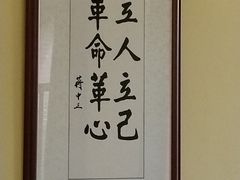 立人立己
革命革心
蔣中正